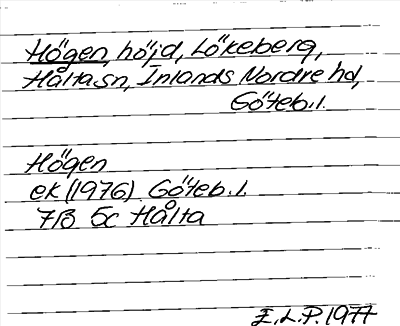 Högen, höjd, Lökeberg,
Hålta sn, Inlands Nordre hd,
Göteb. l.
Högen
ek (1976) Göteb. l.
7B 5c Hålta
E.L.P. 1977